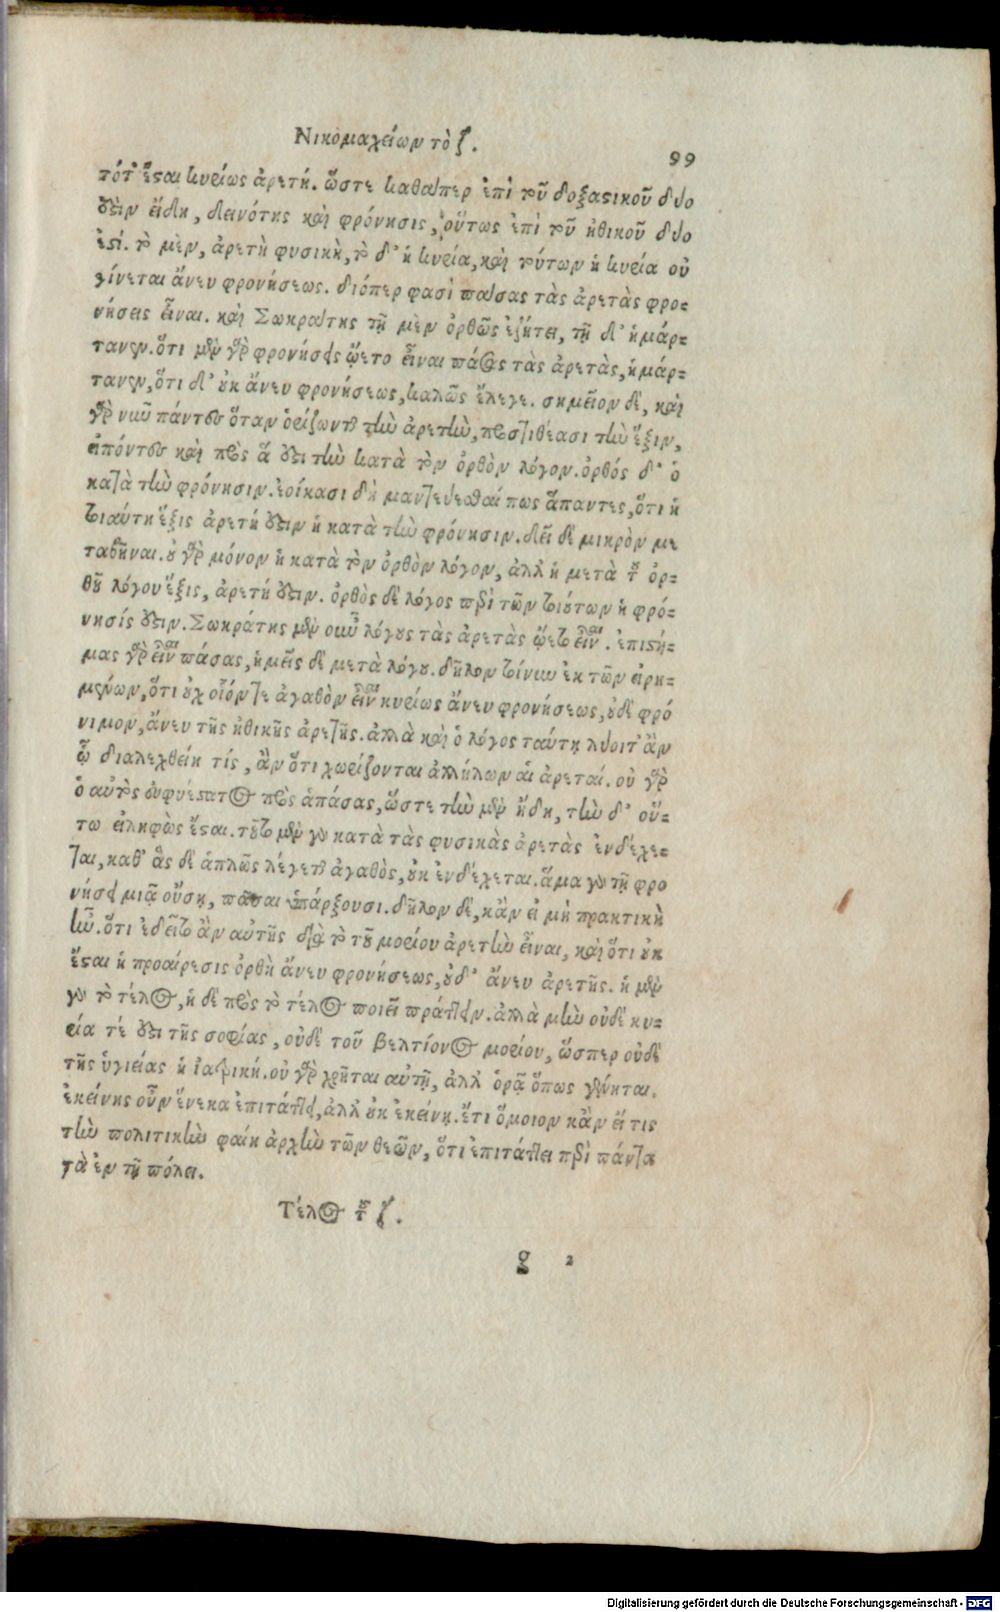 Νικομαχείων τὸ ζ.
99
τότ' ἔσται κυρίως ἀρετή. ὥστε καθάπερ ἐπὶ τοῦ δοξαστικοῦ δύο
ἐστὶν εἴδη, δεινότης καὶ φρόνησις, οὕτως ἐπὶ τοῦ ἠθικοῦ δύο
ἐστί. τὸ μὲν, ἀρετὴ φυσικὴ, τὸ δ' ἡ κυρία, καὶ τούτων ἡ κυρία οὐ
γίνεται ἄνευ φρονήσεως. διόπερ φασὶ πάσας τὰς ἀρετὰς φρο=
νήσεις εἶναι. καὶ Σωκράτης τῇ μὲν ὀρθῶς ἐζήτει, τῇ δ' ἡμάρ=
τανεν. ὅτι μὲν γὰρ φρονήσεις ᾤετο εἶναι πάσας τὰς ἀρετὰς, ἡμάρ=
τανεν, ὅτι δ' οὐκ ἄνευ φρονήσεως, καλῶς ἔλεγε. σημεῖον δὲ, καὶ
γὰρ νῦν πάντες ὅταν ὁρίζωνται τὴν ἀρετὴν, προστιθέασι τὴν ἕξιν,
εἰπόντες καὶ πρὸς ἅ ἐστι τὴν κατὰ τὸν ὀρθὸν λόγον. ὀρθός δ' ὁ
κατὰ τὴν φρόνησιν. ἐοίκασι δὴ μαντεύεσθαί πως ἅπαντες, ὅτι ἡ
τοιαύτη ἕξις ἀρετή ἐστιν ἡ κατὰ τὴν φρόνησιν. δεῖ δὲ μικρὸν με
ταβῆναι. οὐ γὰρ μόνον ἡ κατὰ τὸν ὀρθὸν λόγον, ἀλλ' ἡ μετὰ τοῦ ὀρ=
θοῦ λόγου ἕξις, ἀρετή ἐστιν. ὀρθὸς δὲ λόγος περὶ τῶν τοιούτων ἡ φρό=
νησίς ἐστιν. Σωκράτης μὲν οὖν λόγους τὰς ἀρετὰς ᾤετο εἶναι. ἐπιστή=
μας γὰρ εἶναι πάσας, ἡμεῖς δὲ μετὰ λόγου. δῆλον τοίνυν ἐκ τῶν εἰρη=
μένων, ὅτι οὐχ οἷόν τε ἀγαθὸν εἶναι κυρίως ἄνευ φρονήσεως, οὐδὲ φρό
νιμον, ἄνευ τῆς ἠθικῆς ἀρετῆς. ἀλλὰ καὶ ὁ λόγος ταύτῃ λύοιτ' ἂν
ᾧ διαλεχθείη τίς, ἂν ὅτι χωρίζονται ἀλλήλων αἱ ἀρεταί. οὐ γὰρ
ὁ αὐτὸς εὐφυέστατος πρὸς ἁπάσας, ὥστε τὴν μὲν ἤδη, τὴν δ' οὔ=
πω εἰληφὼς ἔσται. τοῦτο μὲν γὰρ κατὰ τὰς φυσικὰς ἀρετὰς ἐνδέχε=
ται, καθ' ἃς δὲ ἁπλῶς λέγεται ἀγαθὸς, οὐκ ἐνδέχεται. ἅμα γὰρ τῇ φρο
νήσει μιᾷ οὔσῃ, πᾶσαι ὑπάρξουσι. δῆλον δὲ, κἂν εἰ μὴ πρακτικὴ
ἦν. ὅτι ἐδεῖτο ἂν αὐτῆς διὰ τὸ τοῦ μορίου ἀρετὴν εἶναι, καὶ ὅτι οὐκ
ἔσται ἡ προαίρεσις ὀρθὴ ἄνευ φρονήσεως, οὐδ' ἄνευ ἀρετῆς. ἡ μὲν
γὰρ τὸ τέλος, ἡ δὲ πρὸς τὸ τέλος ποιεῖ πράττειν. ἀλλὰ μὴν οὐδὲ κυ=
ρία τέ ἐστι τῆς σοφίας, οὐδὲ τοῦ βελτίονος μορίου, ὥσπερ οὐδὲ
τῆς ὑγιείας ἡ ἰατρική. οὐ γὰρ χρῆται αὐτῇ, ἀλλ' ὁρᾷ ὅπως γένηται.
ἐκείνης οὖν ἕνεκα ἐπιτάττει, ἀλλ' οὐκ ἐκείνῃ. ἔτι ὅμοιον κἂν εἴ τις
τὴν πολιτικὴν φαίη ἀρχὴν τῶν θεῶν, ὅτι ἐπιτάττει περὶ πάντα
τὰ ἐν τῇ πόλει.
Τέλος τοῦ ζ.
g 2
Digitalisierung gefördert durch die Deutsche Forschungsgemeinschaft - DFG